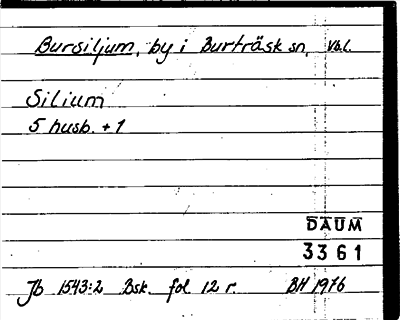 Bursiljum, by i Burträsk sn, Vb.l.
Silium
5 husb. + 1
DAUM
3361
Jb 1543:2 Bsk. fol 12 r. BH 1976